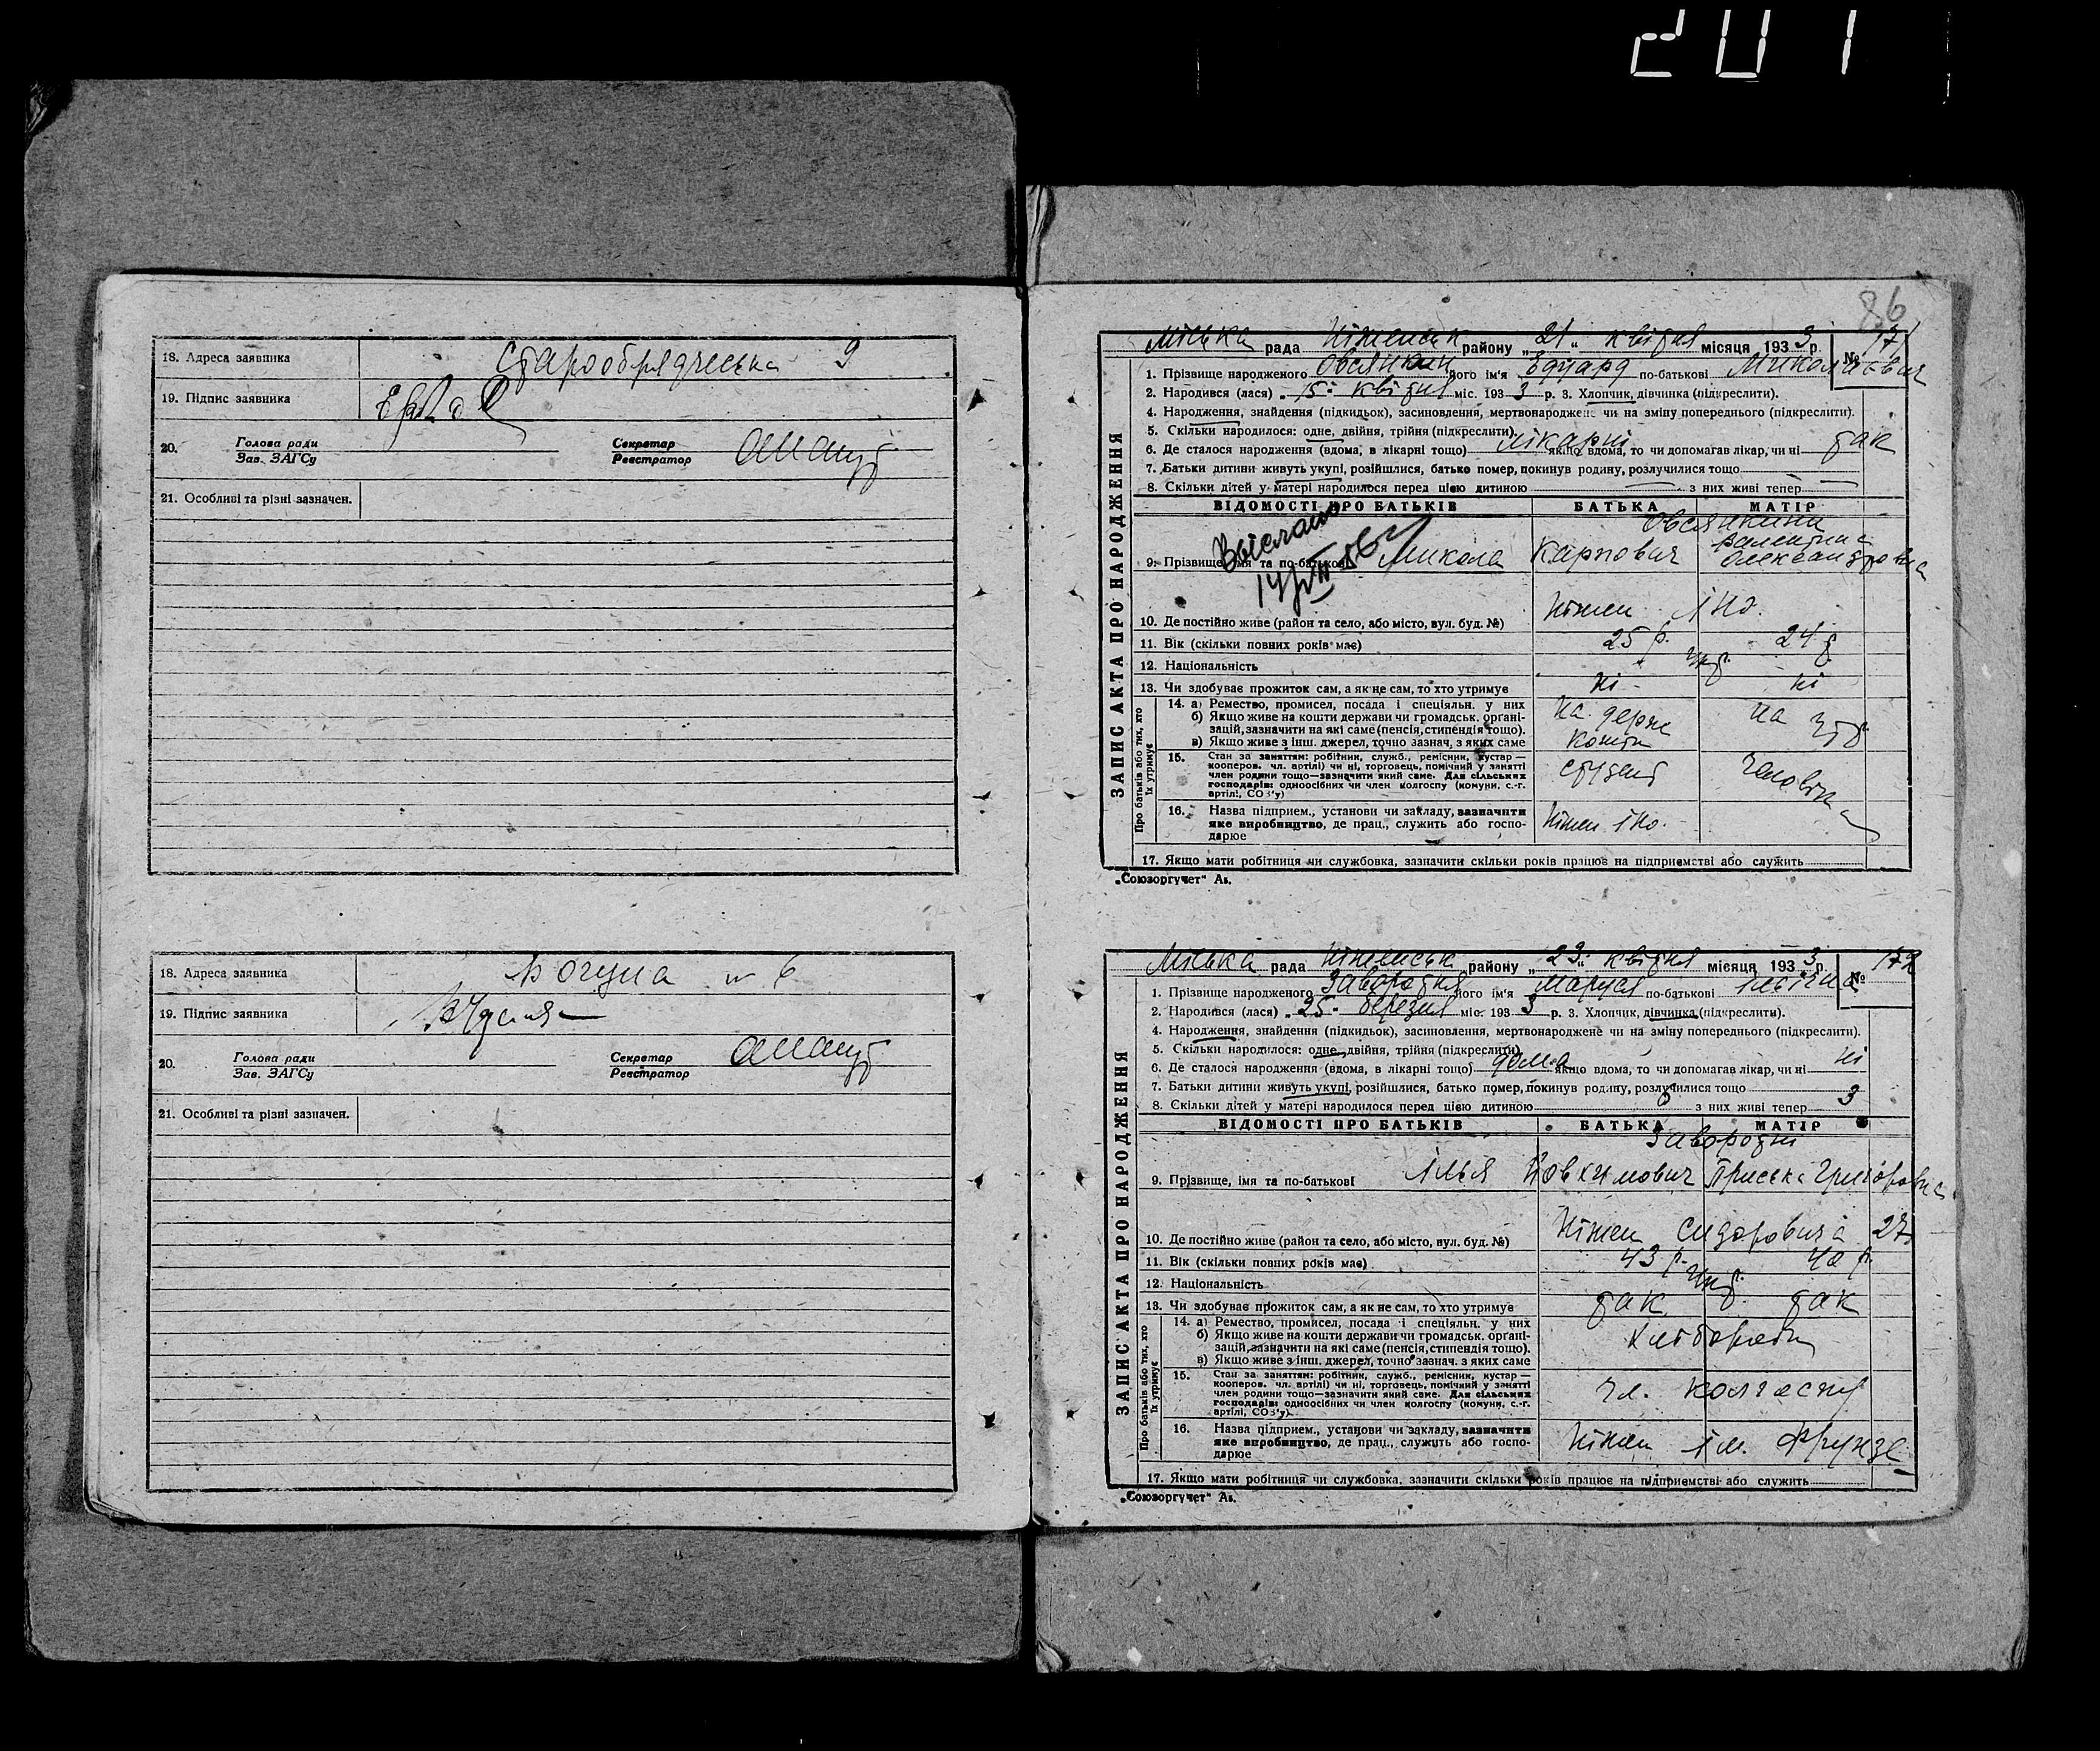 201
18. Адреса заявника Старообрядческа 9
19. Підпис заявника
20. Голова ради
Зав. ЗАГСу
Секретар
Реєстратор
21. Особливі та різні зазначен.
18. Адреса заявника Богуна № 6
19. Підпис заявника
20. Голова ради
Зав. ЗАГСу
Секретар
Реєстратор
21. Особливі та різні зазначен.
86
ЗАПИС АКТА ПРО НАРОДЖЕННЯ
Міська рада Ніженськ району „21“ квітня місяця 1933 р. № 171
1. Прізвище народженого Овсянкин його ім'я Едуард по-батькові Миколаєвич
2. Народився (лася) „15“ квітня міс. 1933 р. 3. Хлопчик, дівчинка (підкреслити).
4. Народження, знайдення (підкидьок), засиновлення, мертвонароджене чи на зміну попереднього (підкреслити).
5. Скільки народилося: одне, двійня, трійня (підкреслити).
6. Де сталося народження (вдома, в лікарні тощо) лікарні якщо вдома, то чи допомагав лікар, чи ні так
7. Батьки дитини живуть укупі, розійшлися, батько помер, покинув родину, розлучилися тощо
8. Скільки дітей у матері народилося перед цією дитиною — з них живі тепер —
ВІДОМОСТІ ПРО БАТЬКІВ БАТЬКА МАТІР
Вислано
Овсянкини
9. Прізвище, імя та по-батькові Микола Карпович Валентина Олександровна
10. Де постійно живе (район та село, або місто, вул. буд. №) Ніжен ІНО.
11. Вік (скільки повних років має) 25 р. 24 р
12. Національність Укр.
13. Чи здобуває прожиток сам, а як не сам, то хто утримує ні - ні
Про батьків або тих, хто їх утримує
14. а) Ремество, промисел, посада і спеціяльн. у них
б) Якщо живе на кошти держави чи громадськ. орґані-
зацій, зазначити на які саме (пенсія, стипендія тощо).
в) Якщо живе з інш. джерел, точно зазнач, з яких саме
на держ кошти на
15. Стан за заняттям: робітник, служб., ремісник, кустар —
кооперов. чл. артілі) чи ні, торговець, помічний у занятті
член родини тощо—зазначити який саме. Для сільських
господарів: одноосібних чи член колгоспу (комуни, с.-г.
артілі, СОЗ'у)
студент чоловіка
16. Назва підприєм., установи чи закладу, зазначити
яке виробництво, де прац., служить або госпо-
дарює
Ніжен ІНО.
17. Якщо мати робітниця чи службовка, зазначити скільки років працює на підприємстві або служить
„Союзоргучет“ Ав.
ЗАПИС АКТА ПРО НАРОДЖЕННЯ
Міська рада Ніженськ району „23“ квітня місяця 1933 р. № 172
1. Прізвище народженого Завородня його ім'я Маруся по-батькові Ільїчна
2. Народився (лася) „25“ березня міс. 1933 р. 3. Хлопчик, дівчинка (підкреслити).
4. Народження, знайдення (підкидьок), засиновлення, мертвонароджене чи на зміну попереднього (підкреслити).
5. Скільки народилося: одне, двійня, трійня (підкреслити).
6. Де сталося народження (вдома, в лікарні тощо) дома якщо вдома, то чи допомагав лікар, чи ні ні
7. Батьки дитини живуть укупі, розійшлися, батько помер, покинув родину, розлучилися тощо
8. Скільки дітей у матері народилося перед цією дитиною з них живі тепер 3
ВІДОМОСТІ ПРО БАТЬКІВ БАТЬКА МАТІР
Завородні
9. Прізвище, імя та по-батькові Ілья Йовхимович Приська Григоровна
10. Де постійно живе (район та село, або місто, вул. буд. №) Ніжен Сидоровича 27
11. Вік (скільки повних років має) 43 р. 40 р.
12. Національність Укр.
13. Чи здобуває прожиток сам, а як не сам, то хто утримує так так
Про батьків або тих, хто їх утримує
14. а) Ремество, промисел, посада і спеціяльн. у них
б) Якщо живе на кошти держави чи громадськ. орґані-
зацій, зазначити на які саме (пенсія, стипендія тощо).
в) Якщо живе з інш. джерел, точно зазнач. з яких саме
Хлібороби
15. Стан за заняттям: робітник, служб., ремісник, кустар —
кооперов. чл. артілі) чи ні, торговець, помічний у занятті
член родини тощо—зазначити який саме. Для сільських
господарів: одноосібних чи член колгоспу (комуни, с.-г.
артілі, СОЗ'у)
чл. колгоспу
16. Назва підприєм., установи чи закладу, зазначити
яке виробництво, де прац., служить або госпо-
дарює
Ніжен ім. Фрунзе
17. Якщо мати робітниця чи службовка, зазначити скільки років працює на підприємстві або служить
„Союзоргучет“ Ав.